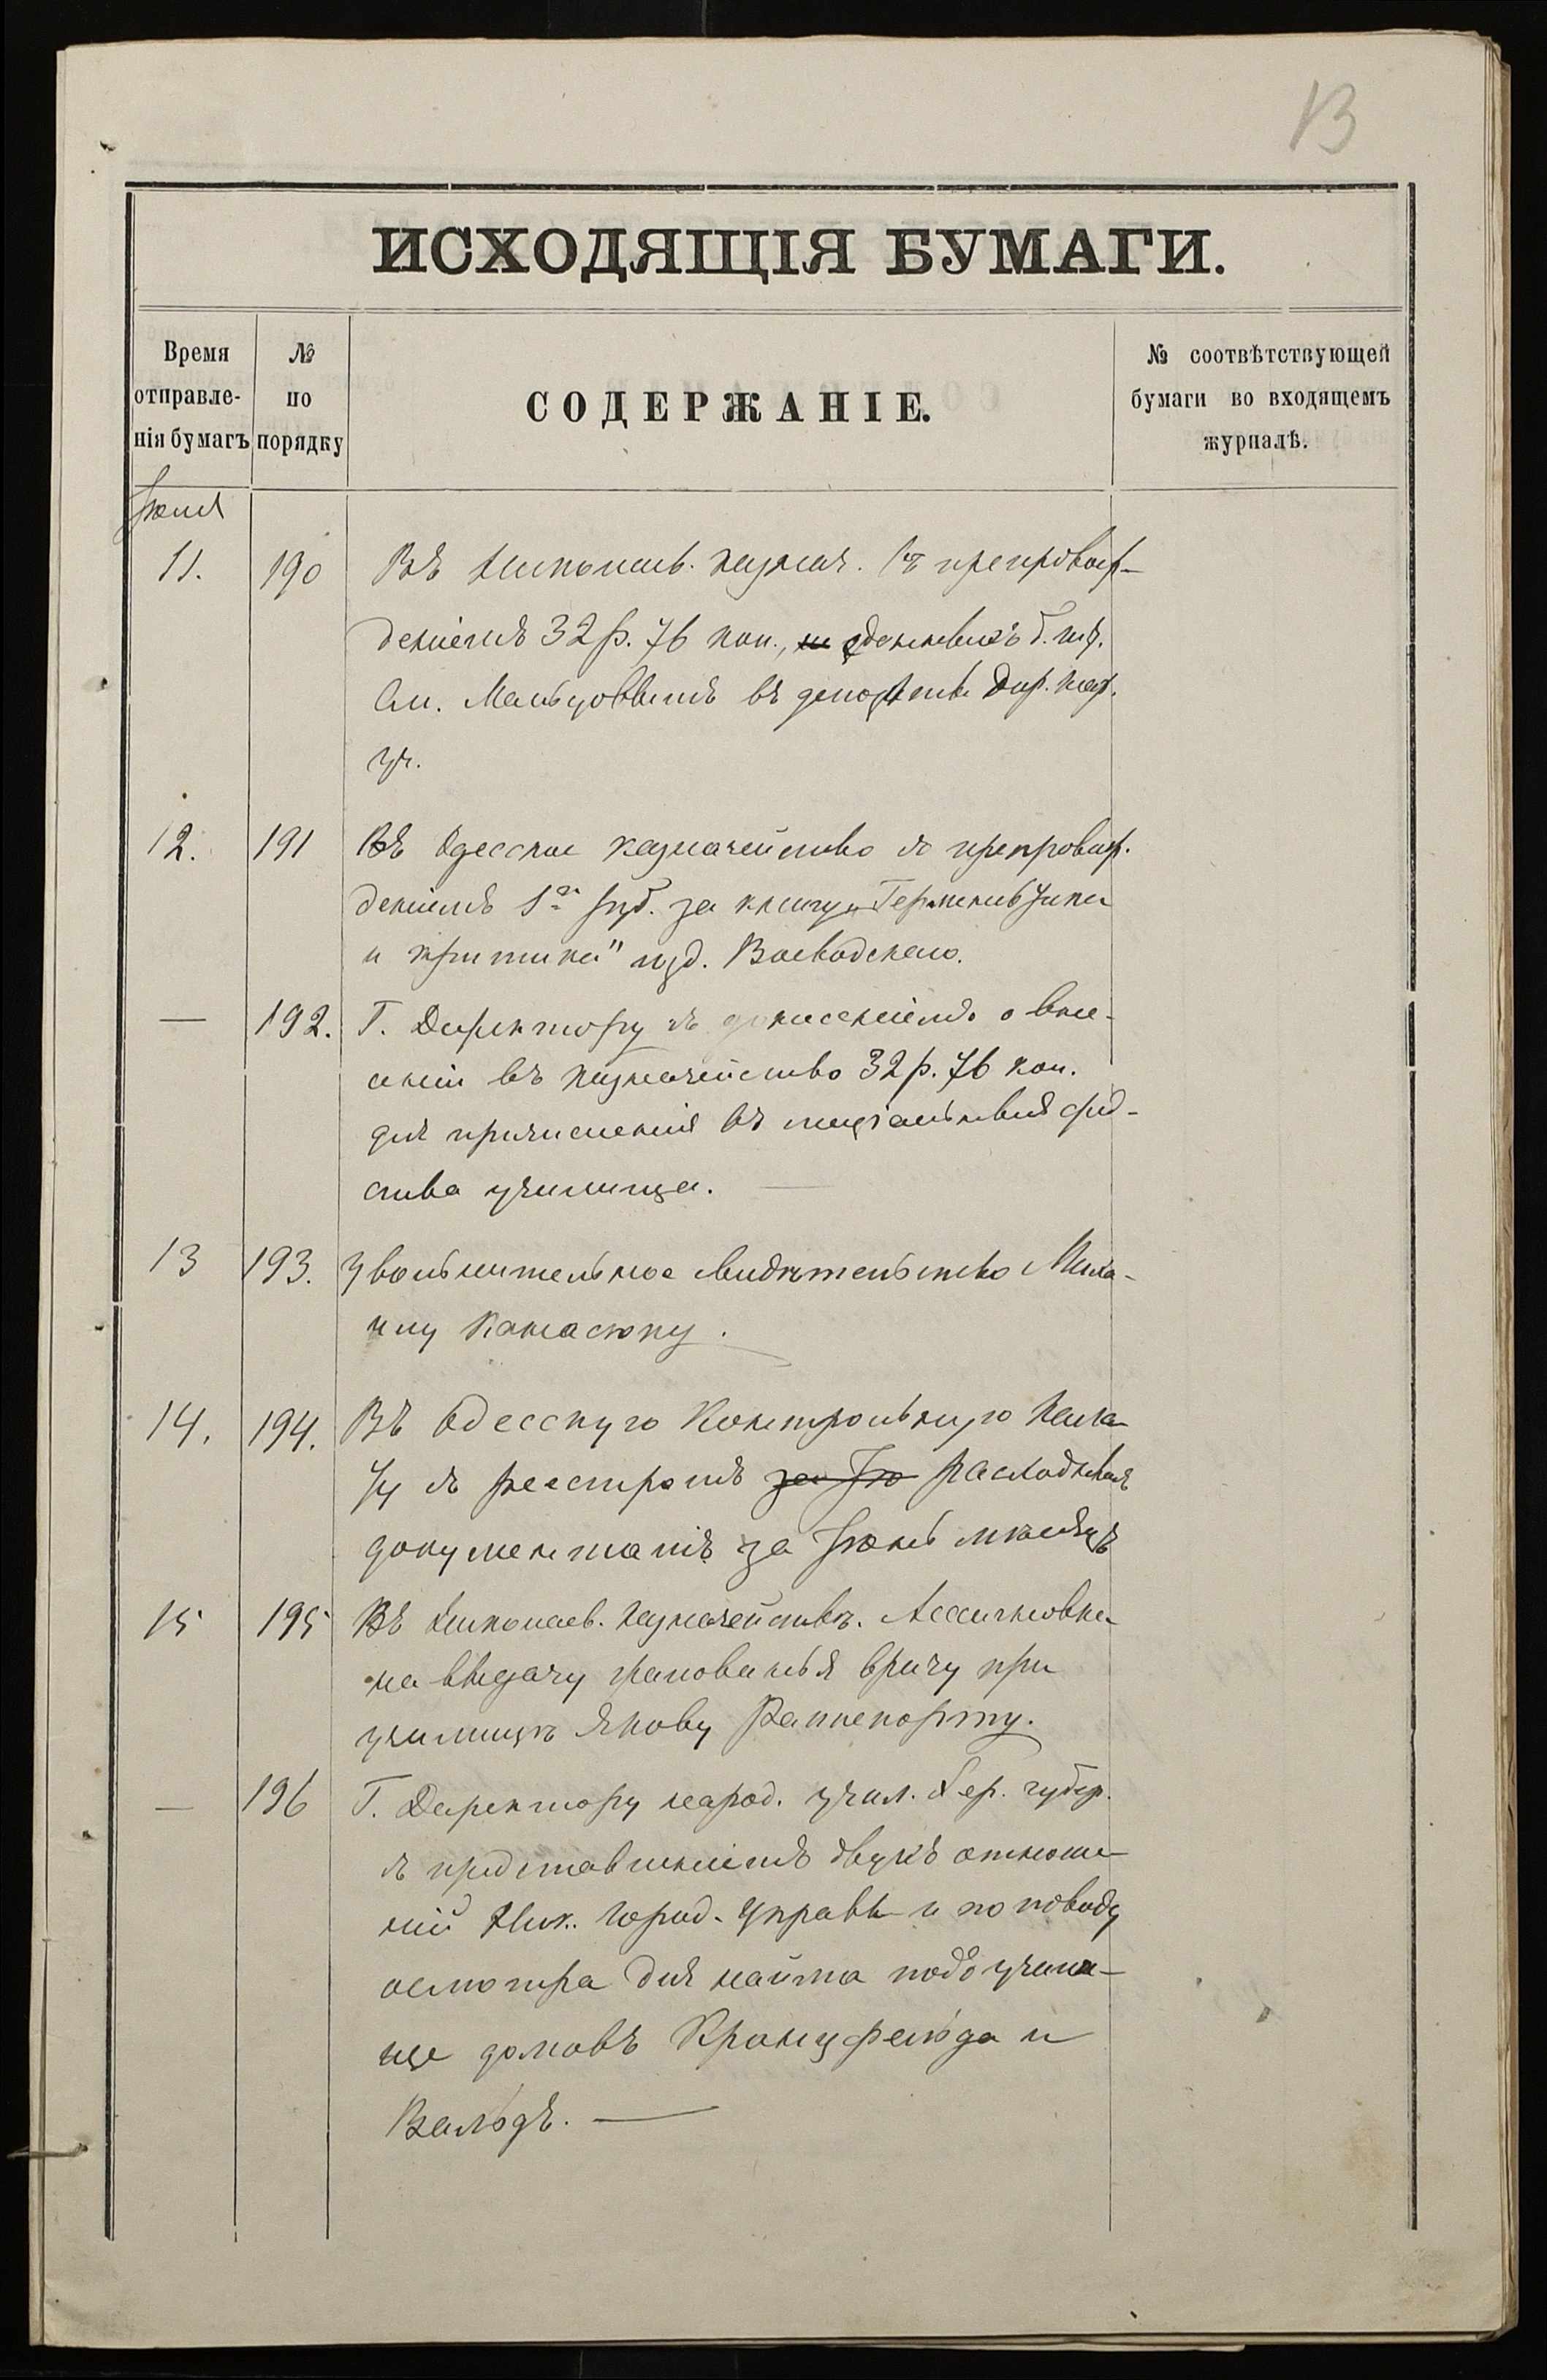 13
ИСХОДЯЩІЯ БУМАГИ.
Время отправленія бумагъ
№ по порядку
СОДЕРЖАНІЕ.
№ соотвѣтствующей бумаги во входящемъ журналѣ.
11. 190 Въ Николаев. казнач. съ препровож-
деніемъ 32 р. 76 коп., б.
См. Мальцовымъ въ Дир. нар.
уч.
12. 191 Въ Одесское казначейство съ препровож.
деніемъ 1го руб. за книгу „Герменевтика
и критика" изд. Воеводскаго.
— 192. Г. Директору съ донесеніемъ о вне-
сеніи въ казначейство 32 р. 76 коп.
для причисленія въ спеціальныя сред-
ства училища. —
13 193. Увольнительное свидѣтельство Миха-
илу
14. 194. Въ Одесскую Контрольную Пала
ту съ реестромъ за Iю расходныхъ
документамъ за мѣсяцъ
15 195 Въ Николаев. Казначейство. Ассигновка
на выдачу жалованья врачу при
училищѣ Якову Раппепорту.
— 196 Г. Директору народ. учил. Хер. губер.
съ представленіемъ двухъ отноше-
ній Ник. Город. Управы и по поводу
осмотра для найма подъ учили-
ще домовъ Кранцфельда и
Вальдъ. —